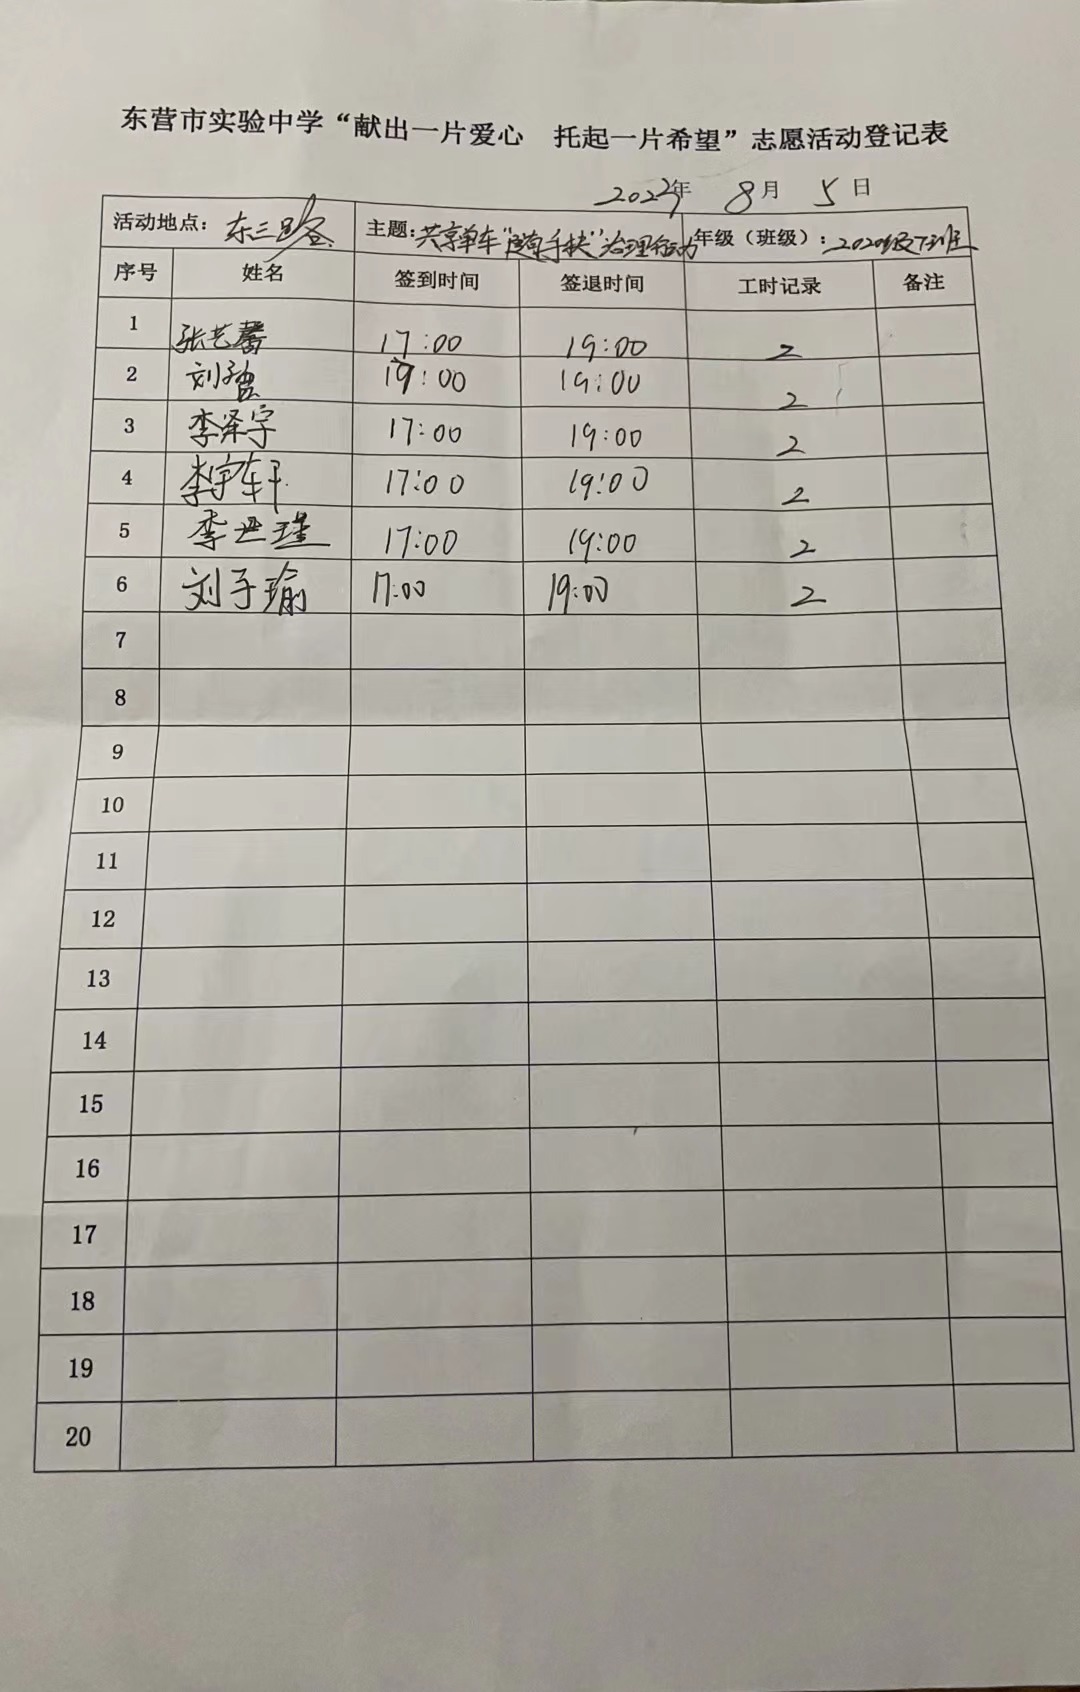 东营市实验中学“献出一片爱心 托起一片希望”志愿活动登记表
年 8月 5日
活动地点：东三路 主题：共享单车“随手扶”治理行动 年级（班级）：2020级7班
序号 姓名 签到时间 签退时间 工时记录 备注
1 张艺馨 17:00 19:00 2
2 刘 19:00 19:00 2
3 李泽宇 17:00 19:00 2
4 李宇轩 17:00 19:00 2
5 李世瑾 17:00 19:00 2
6 刘子瑜 17:00 19:00 2
7
8
9
10
11
12
13
14
15
16
17
18
19
20